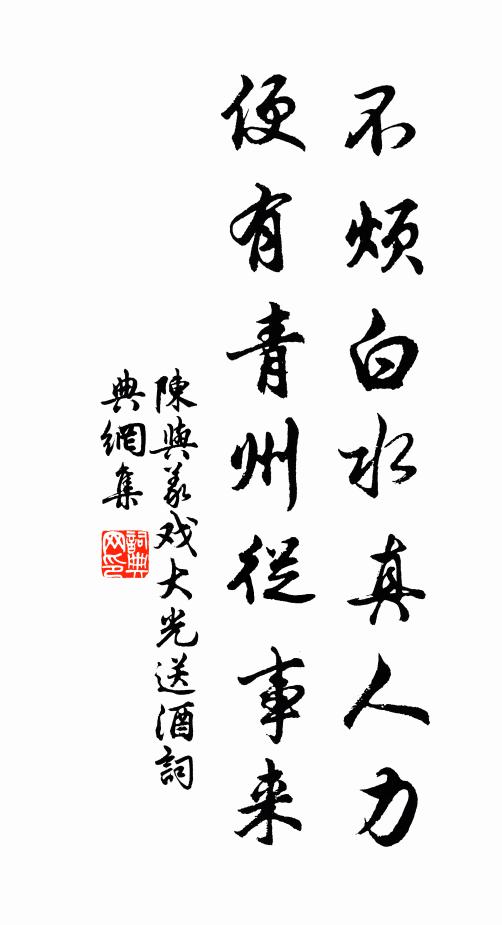 不烦白水真人力
便有青州從事来
陳與义戏大光送酒詞
典網集
詞典
网印